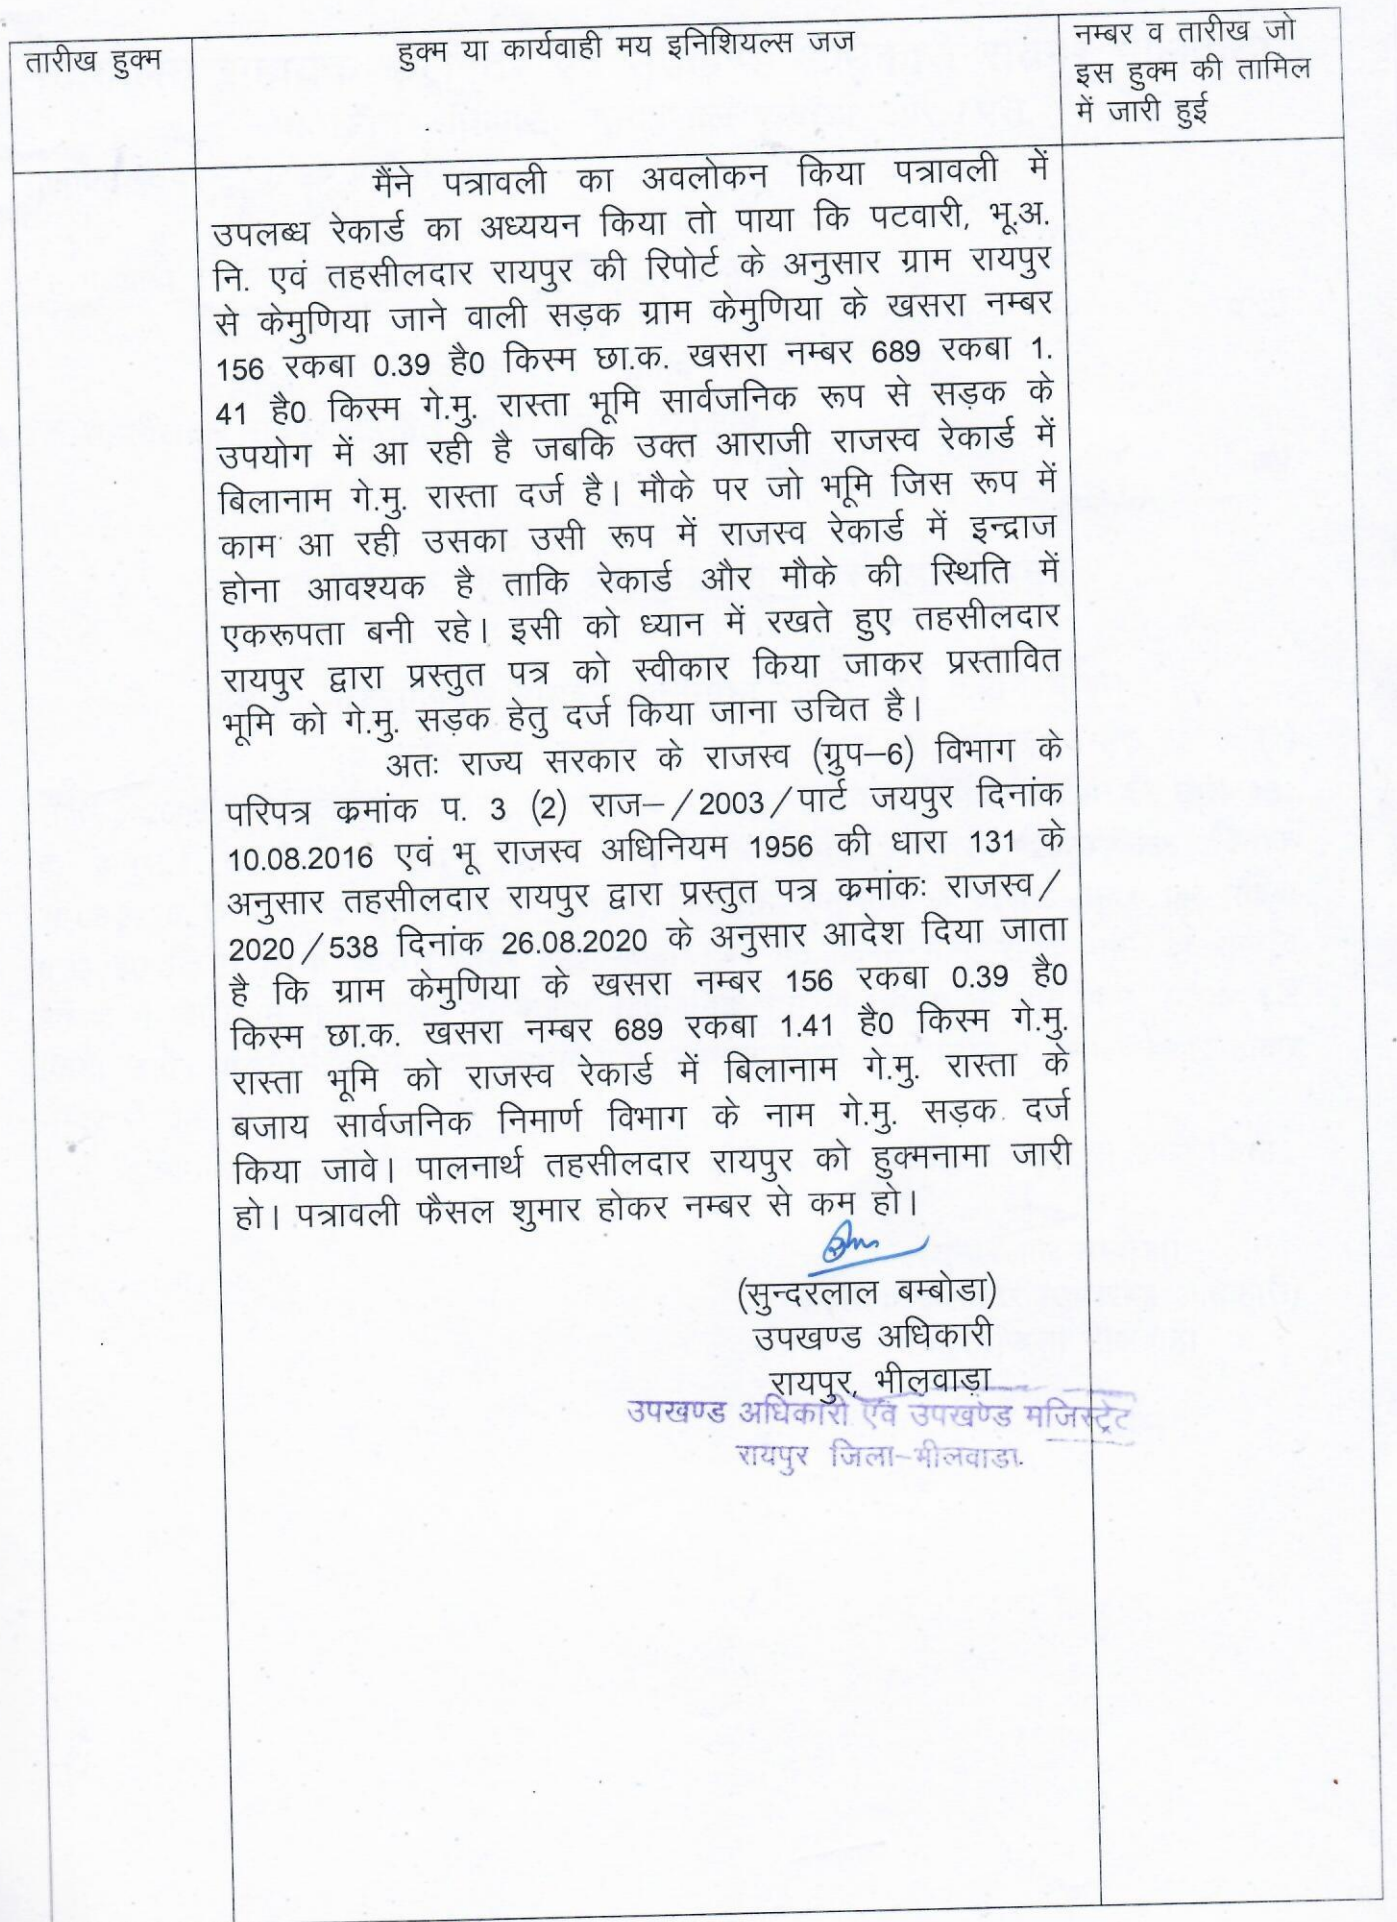 तारीख हुक्म
हुक्म या कार्यवाही मय इनिशियल्स जज
नम्बर व तारीख जो
इस हुक्म की तामिल
में जारी हुई
मैंने पत्रावली का अवलोकन किया पत्रावली में
उपलब्ध रेकार्ड का अध्ययन किया तो पाया कि पटवारी, भू.अ.
नि. एवं तहसीलदार रायपुर की रिपोर्ट के अनुसार ग्राम रायपुर
से केमुणिया जाने वाली सड़क ग्राम केमुणिया के खसरा नम्बर
156 रकबा 0.39 है0 किस्म छा.क. खसरा नम्बर 689 रकबा 1.
41 है0 किस्म गे.मु. रास्ता भूमि सार्वजनिक रूप से सड़क के
उपयोग में आ रही है जबकि उक्त आराजी राजस्व रेकार्ड में
बिलानाम गे.मु. रास्ता दर्ज है। मौके पर जो भूमि जिस रूप में
काम आ रही उसका उसी रूप में राजस्व रेकार्ड में इन्द्राज
होना आवश्यक है ताकि रेकार्ड और मौके की स्थिति में
एकरूपता बनी रहे। इसी को ध्यान में रखते हुए तहसीलदार
रायपुर द्वारा प्रस्तुत पत्र को स्वीकार किया जाकर प्रस्तावित
भूमि को गे.मु. सड़क हेतु दर्ज किया जाना उचित है।
अतः राज्य सरकार के राजस्व (ग्रुप–6) विभाग के
परिपत्र क्रमांक प. 3 (2) राज–/2003/पार्ट जयपुर दिनांक
10.08.2016 एवं भू राजस्व अधिनियम 1956 की धारा 131 के
अनुसार तहसीलदार रायपुर द्वारा प्रस्तुत पत्र क्रमांकः राजस्व/
2020/538 दिनांक 26.08.2020 के अनुसार आदेश दिया जाता
है कि ग्राम केमुणिया के खसरा नम्बर 156 रकबा 0.39 है0
किस्म छा.क. खसरा नम्बर 689 रकबा 1.41 है0 किस्म गे.मु.
रास्ता भूमि को राजस्व रेकार्ड में बिलानाम गे.मु. रास्ता के
बजाय सार्वजनिक निमार्ण विभाग के नाम गे.मु. सड़क दर्ज
किया जावे। पालनार्थ तहसीलदार रायपुर को हुक्मनामा जारी
हो। पत्रावली फैसल शुमार होकर नम्बर से कम हो।
(सुन्दरलाल बम्बोडा)
उपखण्ड अधिकारी
रायपुर, भीलवाड़ा
उपखण्ड अधिकारी एवं उपखण्ड मजिस्ट्रेट
रायपुर जिला–भीलवाडा.